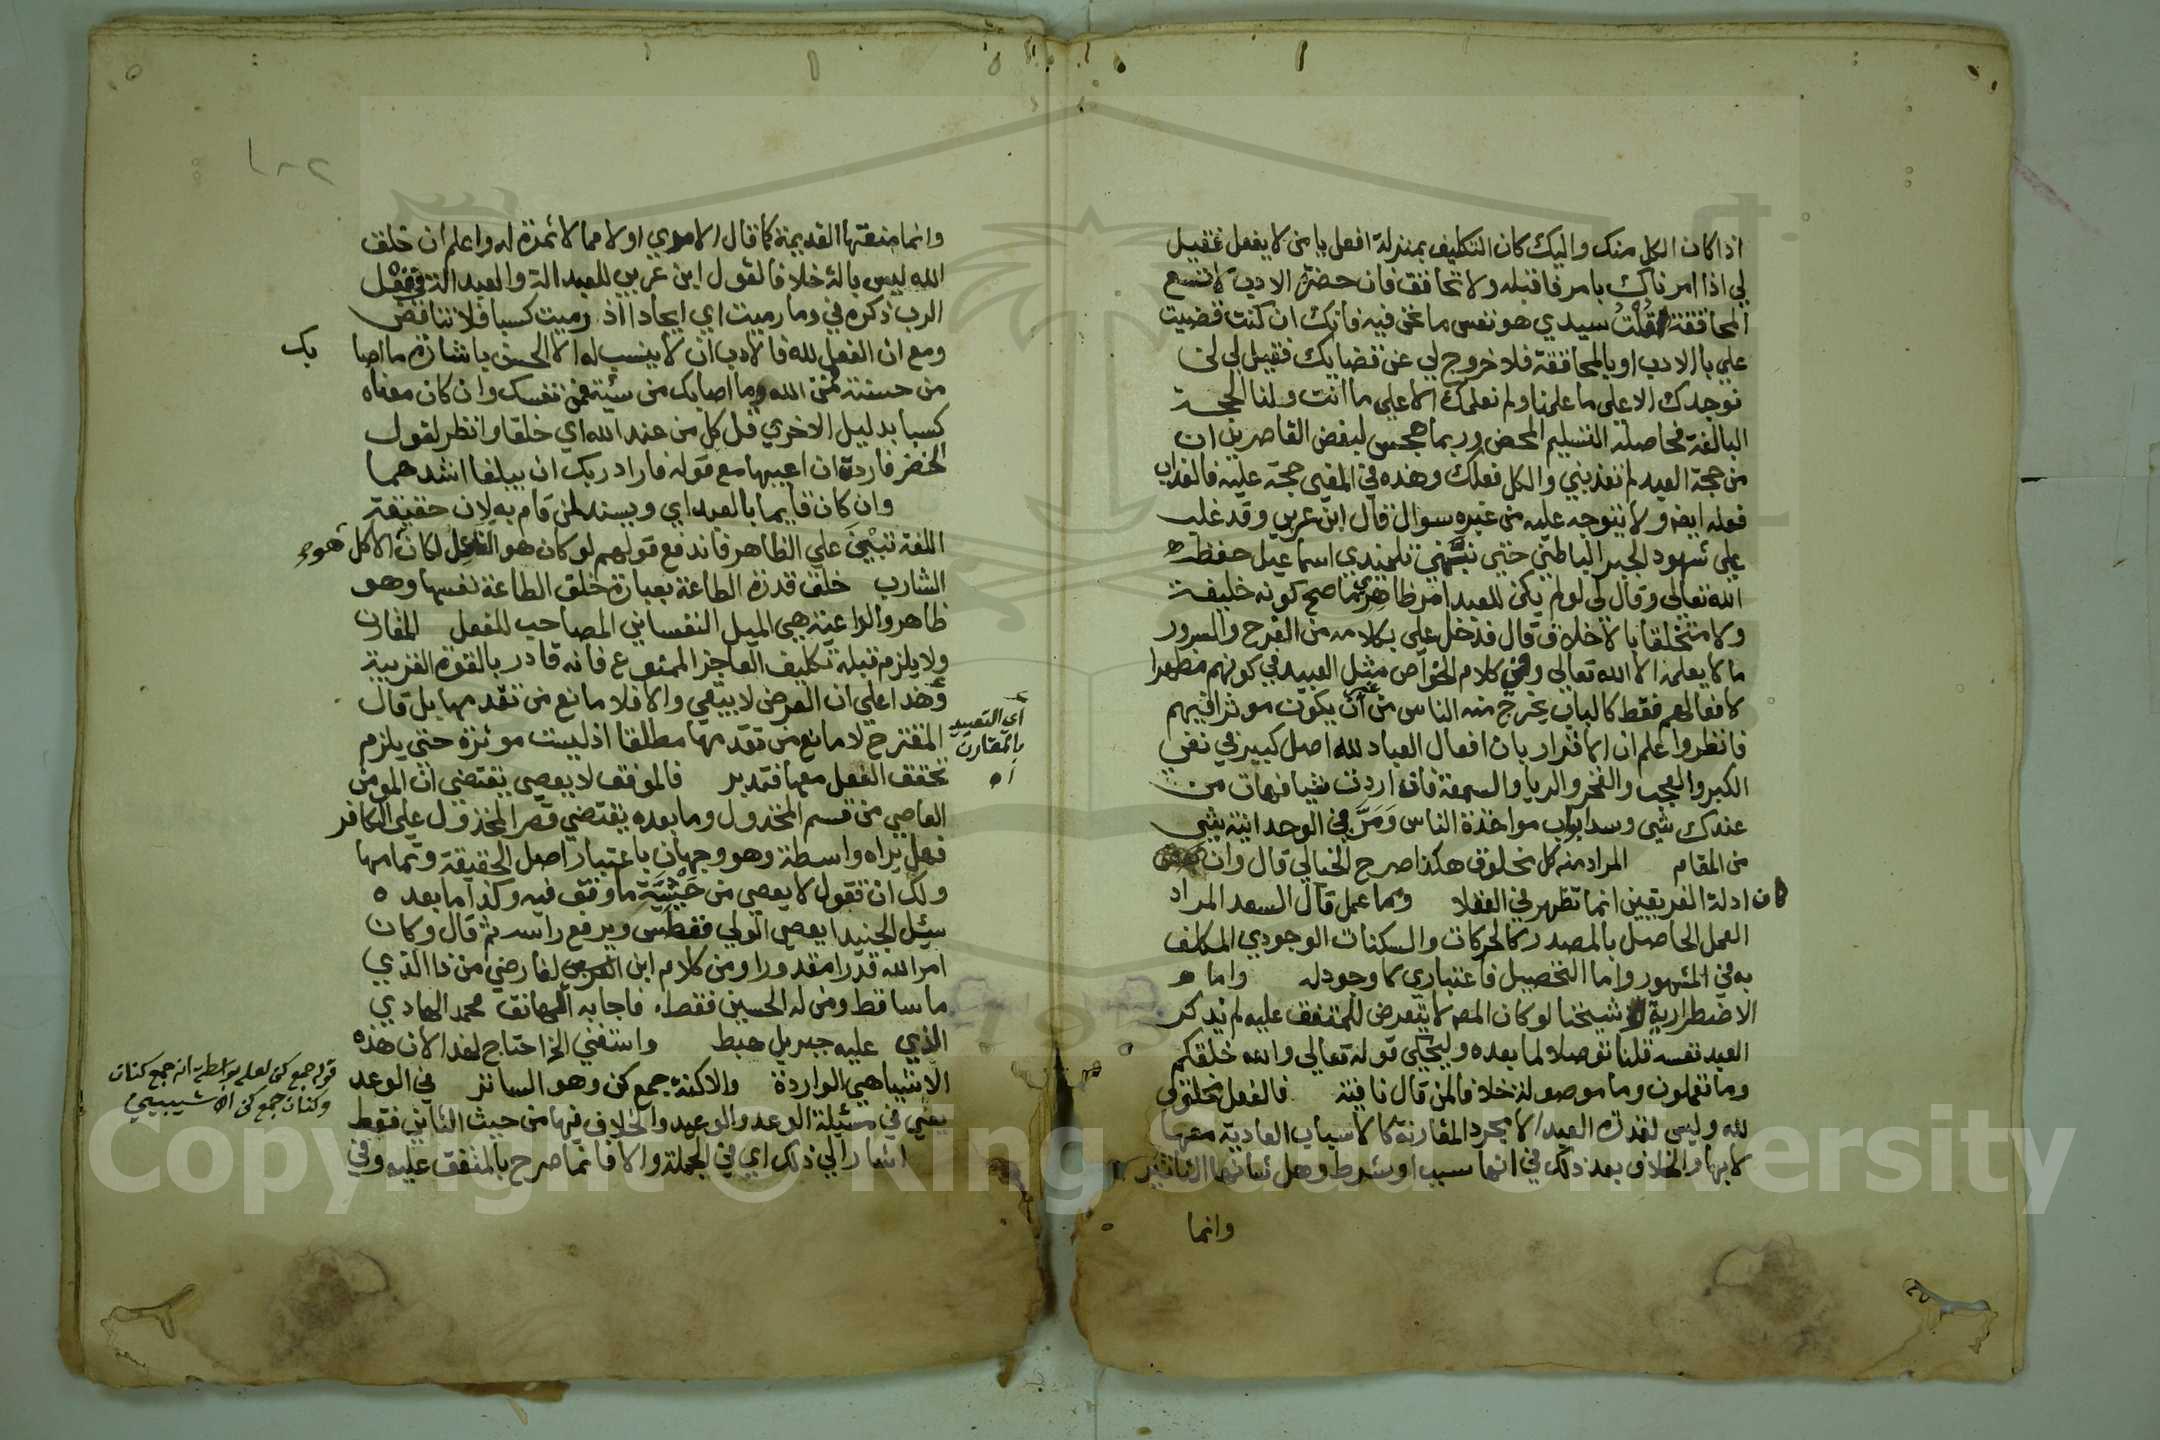 اذا كان الكل منك واليك كان التكليف بمنزلة افعل يا من لا يفعل فقيل
لي اذا امرناك بامر فاقبله ولا تحاقق فان حضرة الادب لا تسع
المحاققة فقلت سيدي هو نفس ما نحن فيه فانك ان كنت قضيت
علي بالادب او بالمحاققة فلا خروج لي عن قضايك فقيل لي لن
نوجدك الا علي ما علمنا ولم نعلمك الا علي ما انت ولنا الحجة
البالغة فحاصله التسليم المحض وربما هجس لبعض القاصرين ان
من حجة العبد لم تعذبني والكل فعلك وهذه في المعني حجة عليه فالعذاب
فعله ايضه ولا يتوجه عليه من غيره سوال قال ابن عربي وقد غلب
علي شهود الجبر الباطني حتي نبهني تلميذي اسماعيل حفظه
الله تعالي وقال لي لو لم يكن للعبد امر ظاهري ما صح كونه خليفة
ولا متخلقا بالاخلاق قال فدخل علي بكلامه من الفرح والسرور
ما لا يعلمه الا الله تعالي ومن كلام الخواص مثل العبيد في كونهم مظهرا
لافعالهم فقط كالباب يخرج منه الناس من غير ان يكون موثرا فيهم
فانظر واعلم ان الاقرار بان افعال العباد لله اصل كبير في نفي
الكبر والعجب والفخر والريا والسمعة فان اردت شيا فهات من
عندك شي وسد ابواب مواخذة الناس ومر في الوحدانية شي
من المقام المراد منه كل مخلوق هكذا صرح الخيالي قال وان
كان ادلة الفريقين انما تظهر في العقلا وما عمل قال السعد المراد
العمل الحاصل بالمصدر كالحركات والسكنات الوجودي المكلف
به في المشهور واما التحصيل فاعتباري لا وجود له واما
الاضطرارية شيخنا لو كان المص لا يتعرض للمتفق عليه لم يذكر
العبد نفسه قلنا توصلا لما بعده وليحكي قوله تعالي والله خلقكم
وما تعملون وما موصولة خلافا لمن قال نافية فالفعل مخلوق
لله وليس لقدرة العبد الا مجرد المقارنة كالاسباب العادية معها
لا بها والخلاف بعد ذلك في انها سبب او شرط وهل شانها التاثير
وانما
وانما منعتها القديمة كما قال الامدي او لا مما لا ثمرة له واعلم ان خلق
الله ليس بالة خلافا لقول ابن عربي للعبد الة والعبد الة في فعل
الرب ذكره في وما رميت اي ايجادا اذ رميت كسبا فلا تناقض
ومع ان الفعل لله فالادب ان لا ينسب له الا الحسن باشارة ما اصابك
من حسنة فمن الله وما اصابك من سيئة فمن نفسك وان كان معناه
كسبا بدليل الاخري قل كل من عند الله اي خلقا وانظر لقول
الخضر فاردت ان اعيبها مع قوله فاراد ربك ان يبلغا اشدهما
وان كان قايما بالعبد اي ويسند لمن قام به لان حقيقة
اللغة تبني علي الظاهر فاندفع قولهم لو كان هو الفاعل لكان الاكل هو
الشارب خلق قدرة الطاعة بعبارة خلق الطاعة نفسها وهو
ظاهر والداعية هي الميل النفساني المصاحب للفعل المقارن
ولا يلزم قبله تكليف العاجز الممنوع فانه قادر بالقوة القريبة
وهذا علي ان العرض لا يبقي والا فلا مانع من تقدمها بل قال
المقترح لا مانع من تقدمها مطلقا اذ ليست موثرة حتي يلزم
تحقق الفعل معها فتدبر فالموفق لا يعصي يقتضي ان المومن
العاصي من قسم المخذول وما بعده يقتضي قصر المخذول علي الكافر
فهل يراه واسطة وهو وجهان باعتبار اصل الحقيقة وتمامها
ولك ان تقول لا يعصي من حيثية ما وفق فيه وكذا ما بعده
سئل الجنيد ايعصي الولي فغطس ويرفع راسه ثم قال وكان
امر الله قدرا مقدورا ومن كلام ابن الفارضي من ذا الذي
ما ساقط ومن له الحسني فقط فاجابه الهاتف محمد الهادي
الذي عليه جبريل هبط واستغني الخ احتاج لهذا لان هذه
الاشيا هي الواردة والاكنة جمع كن وهو الساتر في الوعد
يعني في مسئلة الوعد والوعيد والخلاف فيها من حيث الثاني فقط
اشار الي ذلك اي في الجملة والا فانما صرح بالمتفق عليه وفي
اي التعبير
بالمقارن
اه
قوله جمع كن لعله بواسطة انه جمع كنان
وكنان جمع كن
١٠٢
Copyright © King Saud University